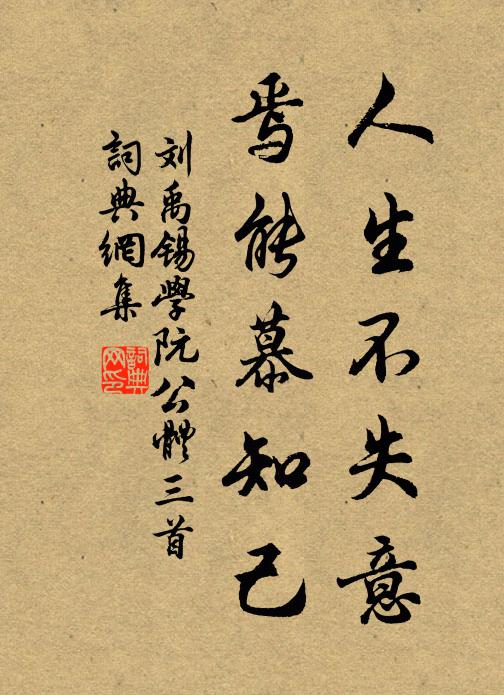 人生不失意
焉能慕知己
刘禹锡學阮公體三首
詞典網集
詞典
网印